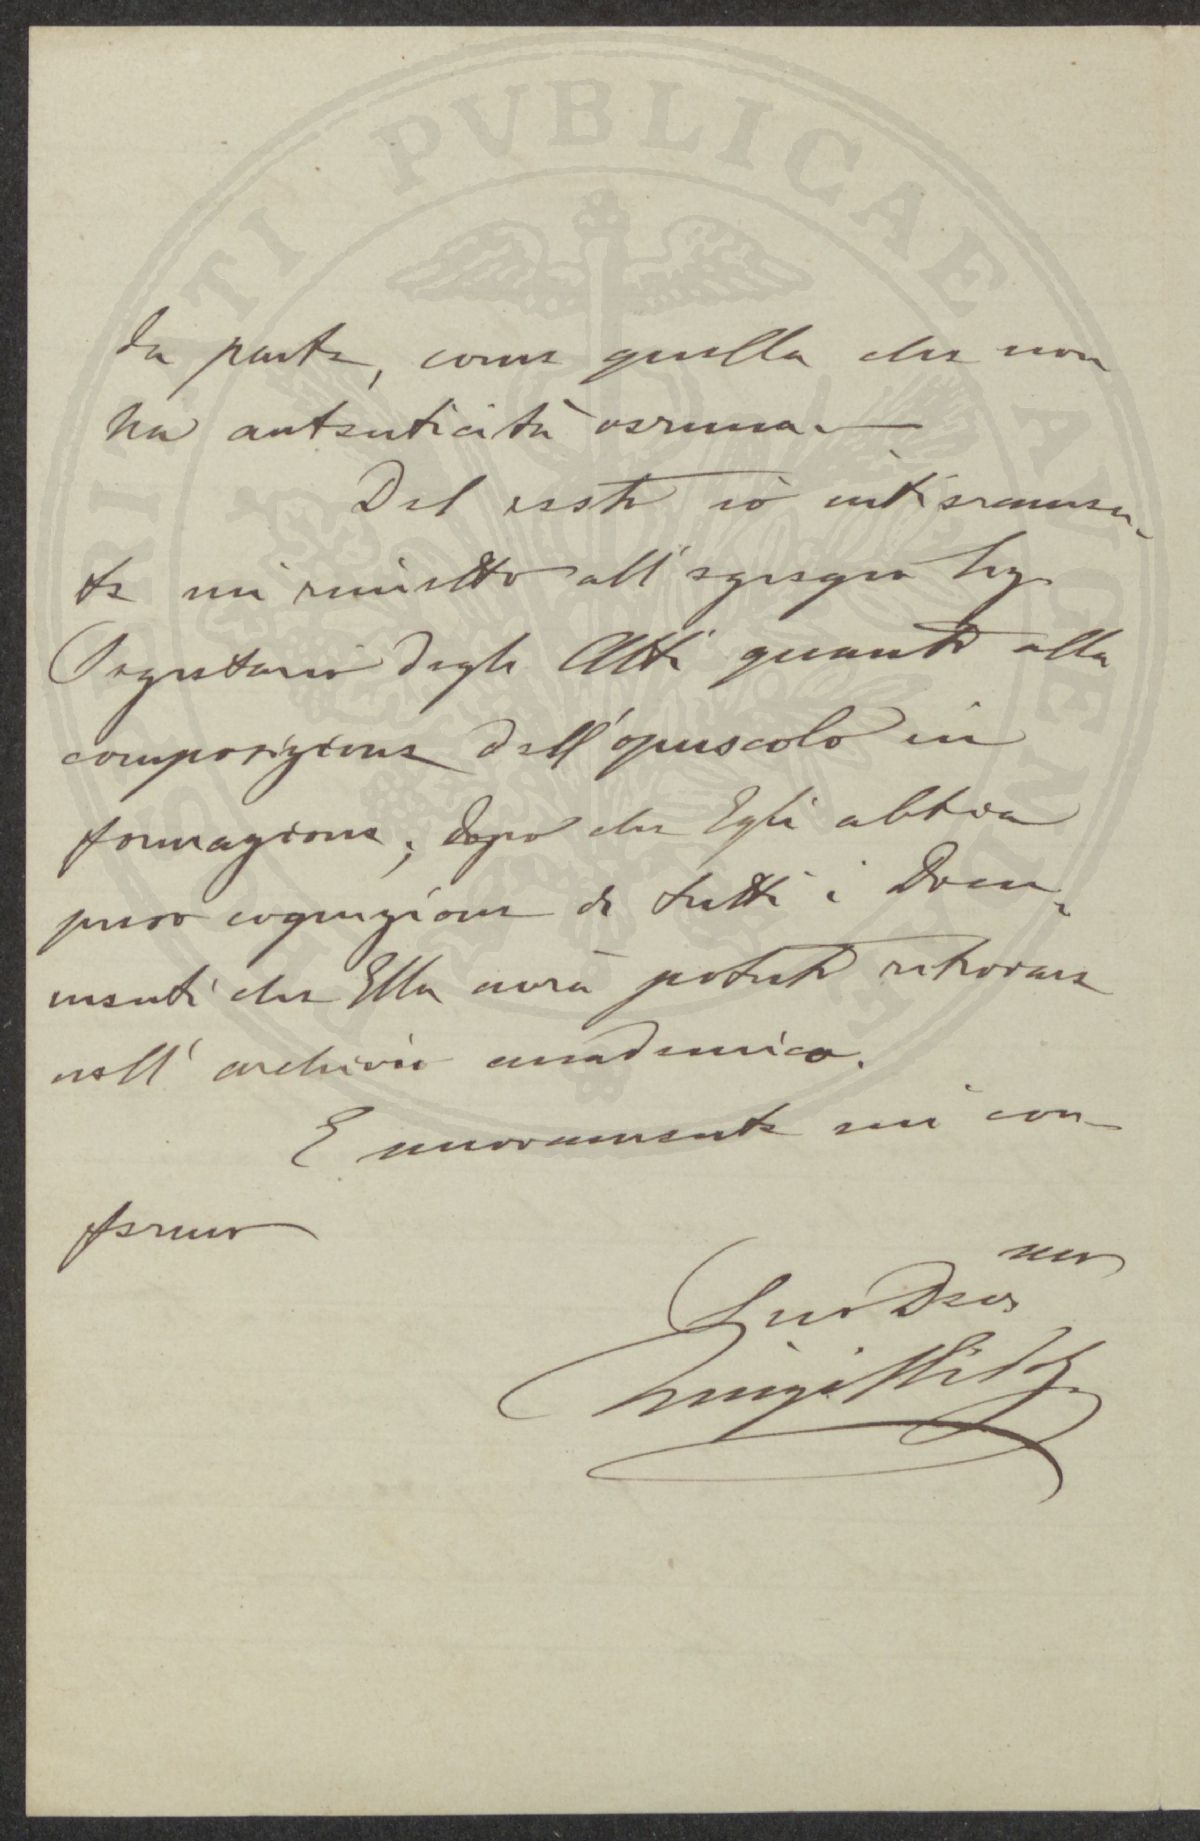 PROSPERITATI PVBLICAE AVGENDAE
da parte, come quella che non
ha autenticità veruna. —
Del resto io intieramen-
te mi rimetto all'egregio Sig.
Segretario degli Atti quanto alla
composizione dell'opuscolo in
formazione; dopo che Egli abbia
preso cognizione di tutti i Docu-
menti che Ella avrà potuto ritrovare
nell'archivio accademico.
E nuovamente mi con-
fermo
Suo Dev.mo
Luigi